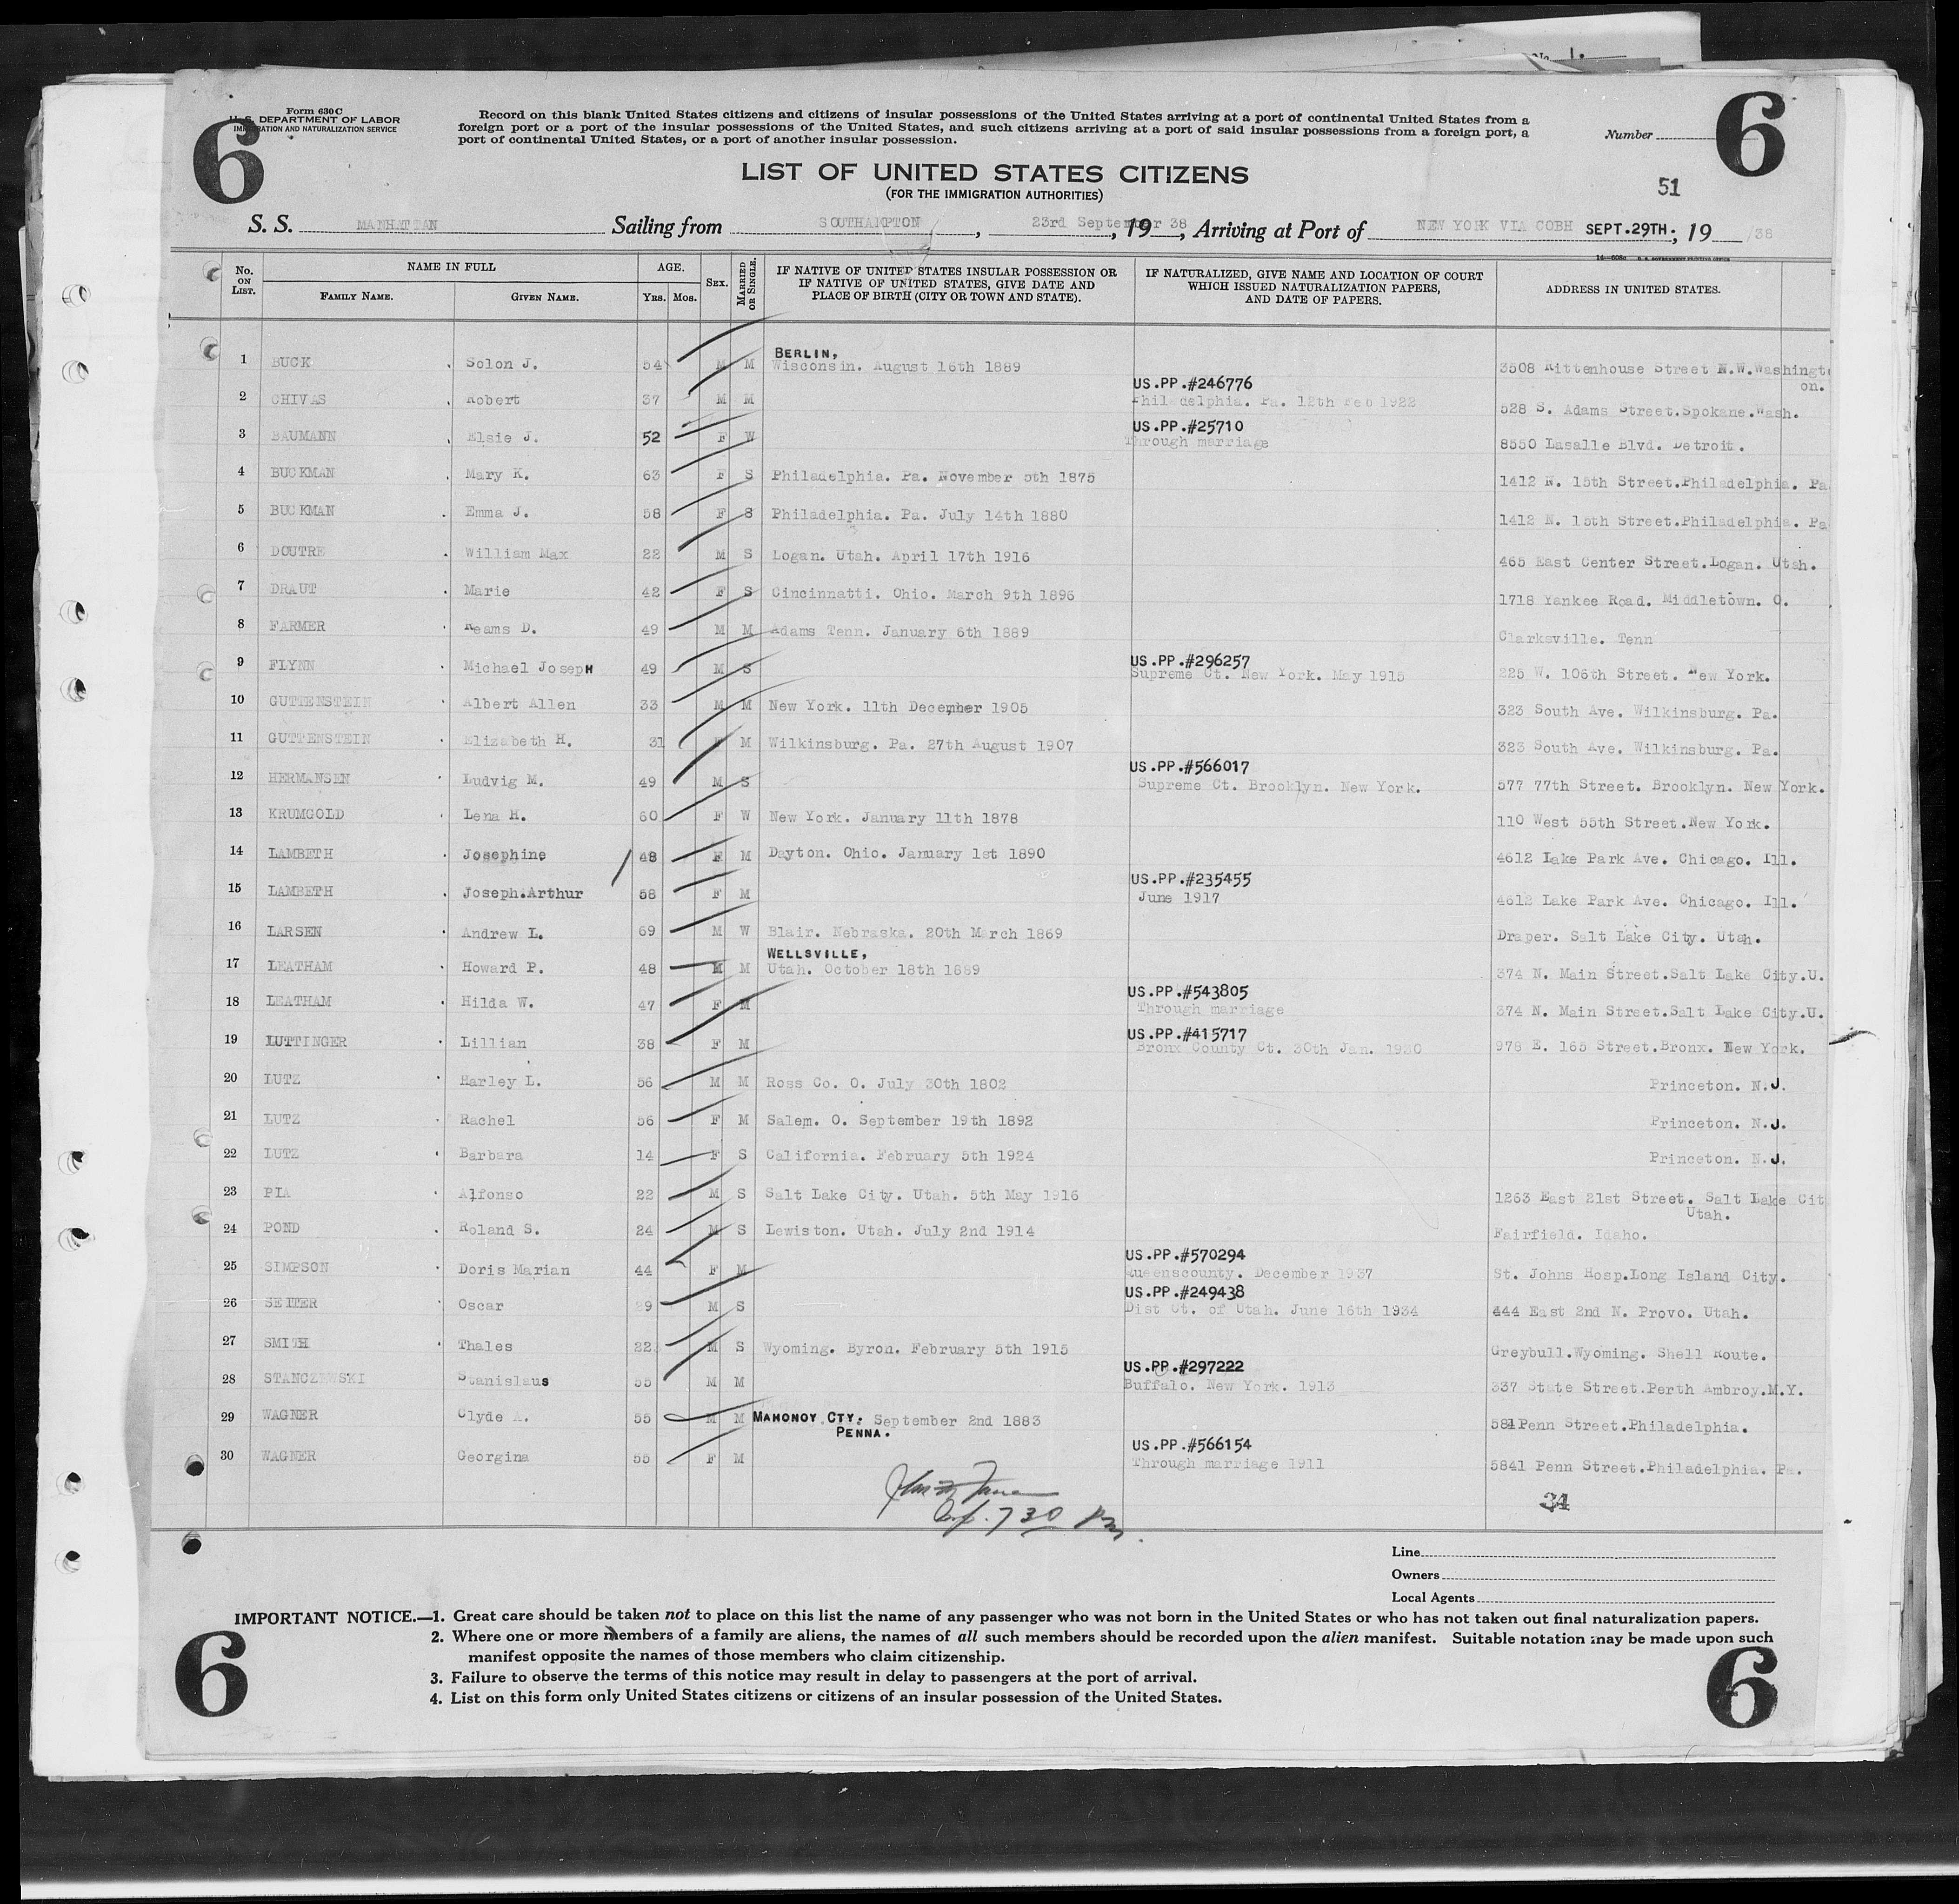 Form 630C
U. S. DEPARTMENT OF LABOR
IMMIGRATION AND NATURALIZATION SERVICE
6
Record on this blank United States citizens and citizens of insular possessions of the United States arriving at a port of continental United States from a
foreign port or a port of the insular possessions of the United States, and such citizens arriving at a port of said insular possessions from a foreign port, a
port of continental United States, or a port of another insular possession.
Number
6
LIST OF UNITED STATES CITIZENS
(FOR THE IMMIGRATION AUTHORITIES)
51
S. S. MANHATTAN Sailing from SOUTHAMPTON, 23rd September 38, 19, Arriving at Port of NEW YORK VIA COBH SEPT.29TH; 19 /38
No. ON LIST. NAME IN FULL FAMILY NAME. GIVEN NAME. AGE. Yrs. Mos. SEX. MARRIED OR SINGLE. IF NATIVE OF UNITED STATES INSULAR POSSESSION OR IF NATIVE OF UNITED STATES, GIVE DATE AND PLACE OF BIRTH (CITY OR TOWN AND STATE). IF NATURALIZED, GIVE NAME AND LOCATION OF COURT WHICH ISSUED NATURALIZATION PAPERS, AND DATE OF PAPERS. ADDRESS IN UNITED STATES.
BERLIN,
1 BUCK Solon J. 54 M M Wisconsin. August 16th 1889 3508 Rittenhouse Street N.W.Washingt
on.
US.PP.#246776
2 CHIVAS Robert 37 M M Philadelphia. Pa. 12th Feb 1922 528 S. Adams Street.Spokane.Wash.
US.PP.#25710
3 BAUMANN Elsie J. 52 F W Through marriage 8550 Lasalle Blvd. Detroit.
4 BUCKMAN Mary K. 63 F S Philadelphia. Pa. November 5th 1875 1412 N. 15th Street.Philadelphia. Pa
5 BUCKMAN Emma J. 58 F S Philadelphia. Pa. July 14th 1880 1412 N. 15th Street.Philadelphia. Pa
6 DOUTRE William Max 22 M S Logan. Utah. April 17th 1916 465 East Center Street.Logan. Utah.
7 DRAUT Marie 42 F S Cincinnatti. Ohio. March 9th 1896 1718 Yankee Road. Middletown. O.
8 FARMER Reams D. 49 M M Adams Tenn. January 6th 1889 Clarksville. Tenn
US.PP.#296257
9 FLYNN Michael JosepH 49 M S Supreme Ct. New York. May 1915 225 W. 106th Street. New York.
10 GUTTENSTEIN Albert Allen 33 M M New York. 11th December 1905 323 South Ave. Wilkinsburg. Pa.
11 GUTTENSTEIN Elizabeth H. 31 F M Wilkinsburg. Pa. 27th August 1907 323 South Ave. Wilkinsburg. Pa.
US.PP.#566017
12 HERMANSEN Ludvig M. 49 M S Supreme Ct. Brooklyn. New York. 577 77th Street. Brooklyn. New York.
13 KRUMGOLD Lena H. 60 F W New York. January 11th 1878 110 West 55th Street.New York.
14 LAMBETH Josephine 48 F M Dayton. Ohio. January 1st 1890 4612 Lake Park Ave. Chicago. Ill.
US.PP.#235455
15 LAMBETH Joseph.Arthur 58 F M June 1917 4612 Lake Park Ave. Chicago. Ill.
16 LARSEN Andrew L. 69 M W Blair. Nebraska. 20th March 1869 Draper. Salt Lake City. Utah.
WELLSVILLE,
17 LEATHAM Howard P. 48 M M Utah. October 18th 1889 374 N. Main Street.Salt Lake City.U.
US.PP.#543805
18 LEATHAM Hilda W. 47 F M Through marriage 374 N. Main Street.Salt Lake City.U.
US.PP.#415717
19 LUTTINGER Lillian 38 F M Bronx County Ct. 30th Jan. 1930 978 E. 165 Street.Bronx. New York.
20 LUTZ Harley L. 56 M M Ross Co. O. July 30th 1802 Princeton. N.J.
21 LUTZ Rachel 56 F M Salem. O. September 19th 1892 Princeton. N.J.
22 LUTZ Barbara 14 F S California. February 5th 1924 Princeton. N.J.
23 PIA Alfonso 22 M S Salt Lake City. Utah. 5th May 1916 1263 East 21st Street. Salt Lake Cit
Utah.
24 POND Roland S. 24 M S Lewiston. Utah. July 2nd 1914 Fairfield. Idaho.
US.PP.#570294
25 SIMPSON Doris Marian 44 F M Queenscounty. December 1937 St. Johns Hosp.Long Island City.
US.PP.#249438
26 SEITER Oscar 29 M S Dist Ct. of Utah. June 16th 1934 444 East 2nd N. Provo. Utah.
27 SMITH Thales 22 M S Wyoming. Byron. February 5th 1915 Greybull.Wyoming. Shell Route.
US.PP.#297222
28 STANCZEWSKI Stanislaus 55 M M Buffalo. New York. 1913 337 State Street.Perth Ambroy.N.Y.
29 WAGNER Clyde A. 55 M M MAHONOY CTY. September 2nd 1883 5841Penn Street.Philadelphia.
PENNA.
US.PP.#566154
30 WAGNER Georgina 55 F M Through marriage 1911 5841 Penn Street.Philadelphia. Pa.
7 30 Pm
Line
Owners
Local Agents
IMPORTANT NOTICE.—1. Great care should be taken not to place on this list the name of any passenger who was not born in the United States or who has not taken out final naturalization papers.
2. Where one or more members of a family are aliens, the names of all such members should be recorded upon the alien manifest. Suitable notation may be made upon such
manifest opposite the names of those members who claim citizenship.
3. Failure to observe the terms of this notice may result in delay to passengers at the port of arrival.
4. List on this form only United States citizens or citizens of an insular possession of the United States.
6
6